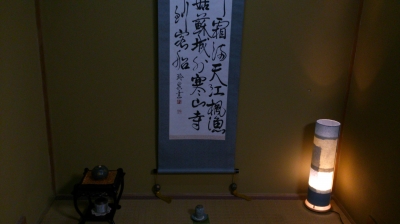 霜滿天江楓漁
姑蘇城外寒山寺
到客船